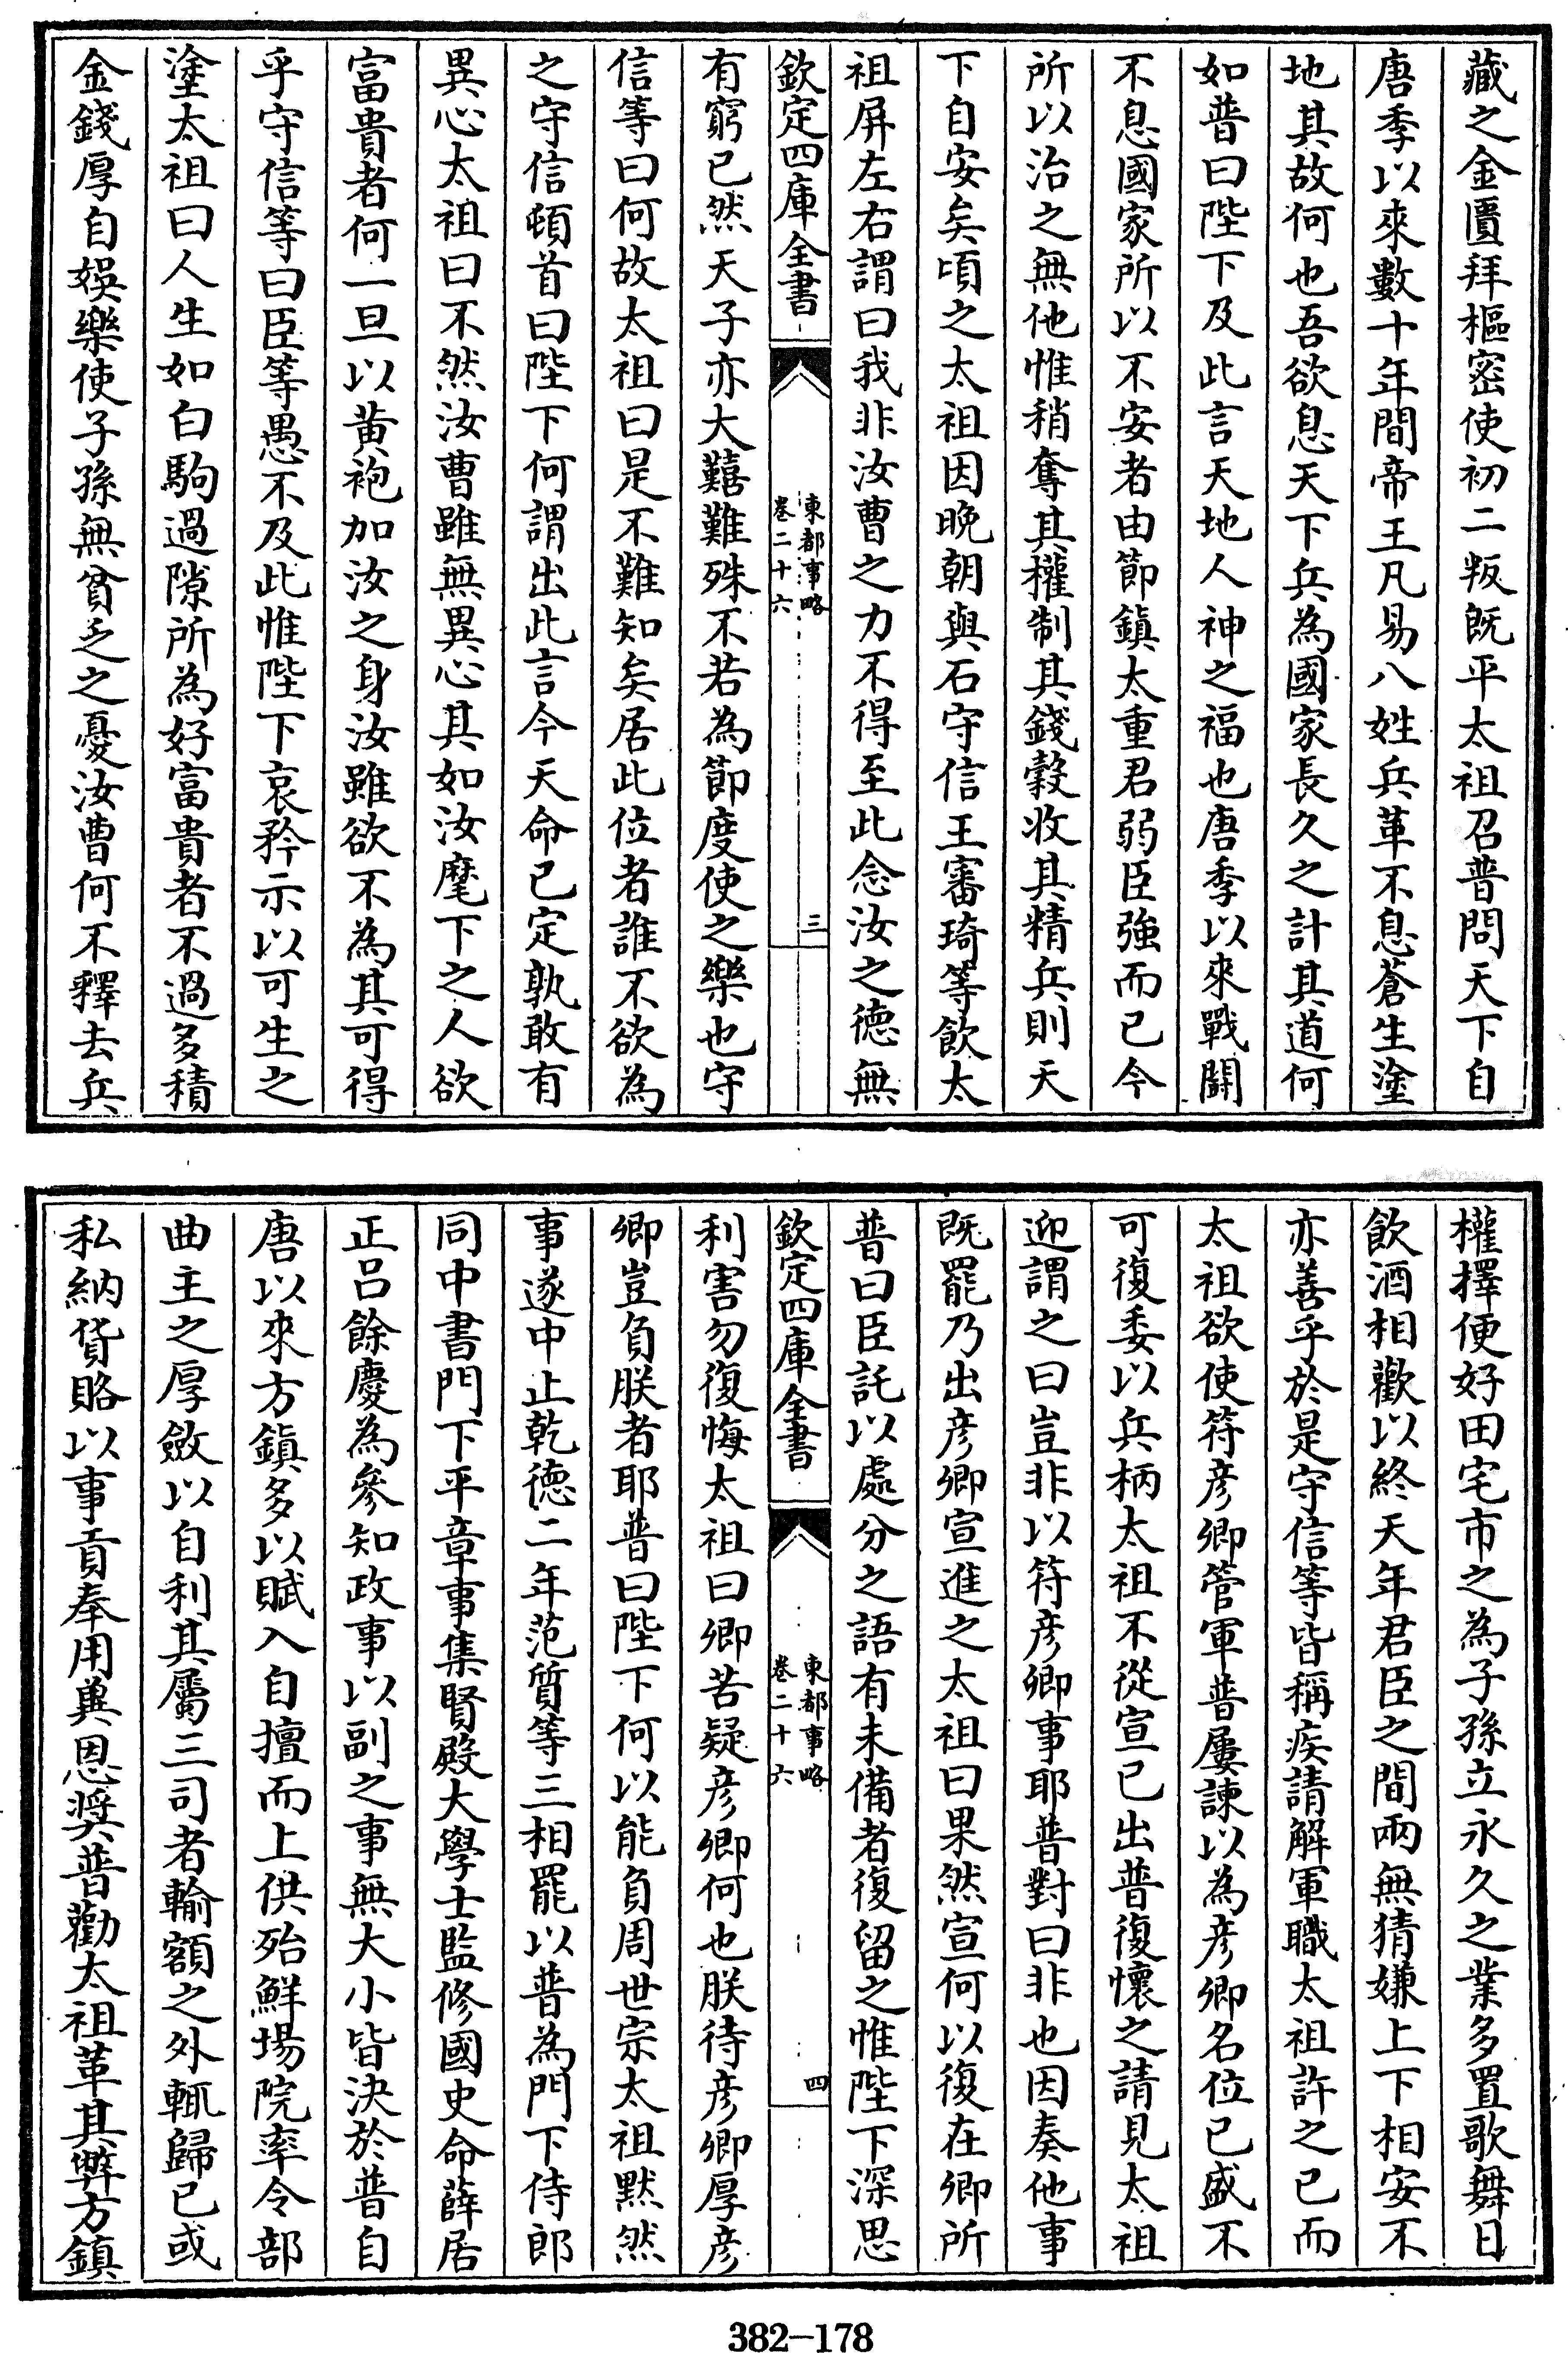 藏之金匱拜樞密使初二叛既平太祖召普問天下自
唐季以來數十年間帝王凡易八姓兵革不息蒼生塗
地其故何也吾欲息天下兵為國家長久之計其道何
如普曰陛下及此言天地人神之福也唐季以來戰鬬
不息國家所以不安者由節鎮太重君弱臣強而已今
所以治之無他惟稍奪其權制其錢穀收其精兵則天
下自安矣頃之太祖因晚朝與石守信王審琦等飲太
祖屏左右謂曰我非汝曹之力不得至此念汝之德無
欽定四庫全書
東都事略
卷二十六
三
有窮已然天子亦大囏難殊不若為節度使之樂也守
信等曰何故太祖曰是不難知矣居此位者誰不欲為
之守信頓首曰陛下何謂出此言今天命已定孰敢有
異心太祖曰不然汝曹雖無異心其如汝麾下之人欲
富貴者何一旦以黃袍加汝之身汝雖欲不為其可得
乎守信等曰臣等愚不及此惟陛下哀矜示以可生之
塗太祖曰人生如白駒過隙所為好富貴者不過多積
金錢厚自娛樂使子孫無貧乏之憂汝曹何不釋去兵
權擇便好田宅市之為子孫立永久之業多置歌舞日
飲酒相歡以終天年君臣之間兩無猜嫌上下相安不
亦善乎於是守信等皆稱疾請解軍職太祖許之已而
太祖欲使符彥卿管軍普屢諫以為彥卿名位已盛不
可復委以兵柄太祖不從宣已出普復懷之請見太祖
迎謂之曰豈非以符彥卿事耶普對曰非也因奏他事
既罷乃出彥卿宣進之太祖曰果然宣何以復在卿所
普曰臣託以處分之語有未備者復留之惟陛下深思
欽定四庫全書
東都事略
卷二十六
四
利害勿復悔太祖曰卿苦疑彥卿何也朕待彥卿厚彥
卿豈負朕者耶普曰陛下何以能負周世宗太祖默然
事遂中止乾德二年范質等三相罷以普為門下侍郎
同中書門下平章事集賢殿大學士監修國史命薛居
正呂餘慶為參知政事以副之事無大小皆決於普自
唐以來方鎮多以賦入自擅而上供殆鮮場院率令部
曲主之厚斂以自利其屬三司者輸額之外輒歸已或
私納貨賂以事貢奉用冀恩奬普勸太祖革其弊方鎮
382-178